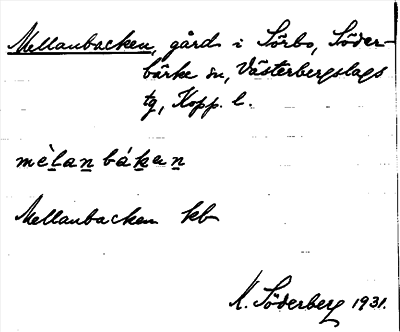 Mellanbacken, gård i Sörbo, Söder-
bärke sn, Västerbergslags
tg, Kopp. l.
mèlanbákan
Mellanbacken kb
K. Söderberg 1931.